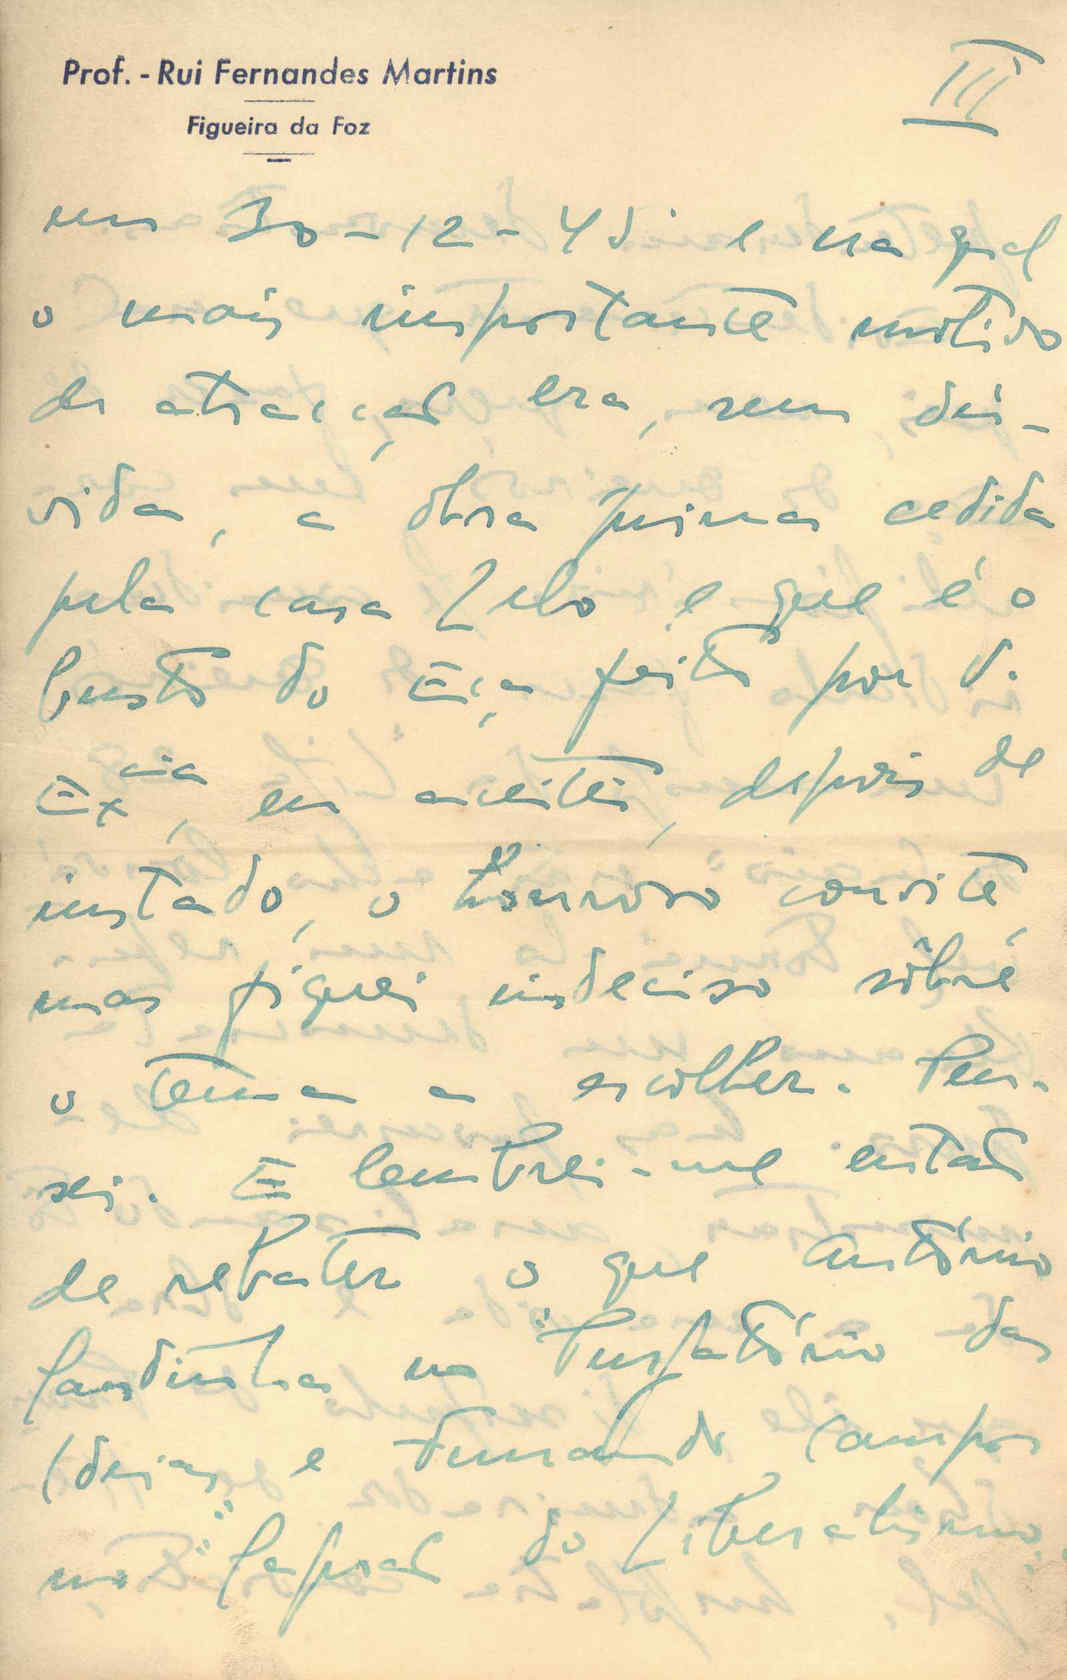 Prof. - Rui Fernandes Martins
Figueira da Foz
III
em 30-12-45 e na qual
o mais importante motivo
de atracção era, sem dú-
vida, a obra prima cedida
pela casa Lelo e que é o
busto do Eça feito por V.
Ex.cia, eu aceitei, depois de
instado, o honroso convite,
mas fiquei indeciso sôbre
o tema a escolher. Pen-
sei. E lembrei-me então
de rebater o que António
Sardinha no "Purgatório das
Ideias" e Fernando Campos
no "Lapsal do Liberalismo"